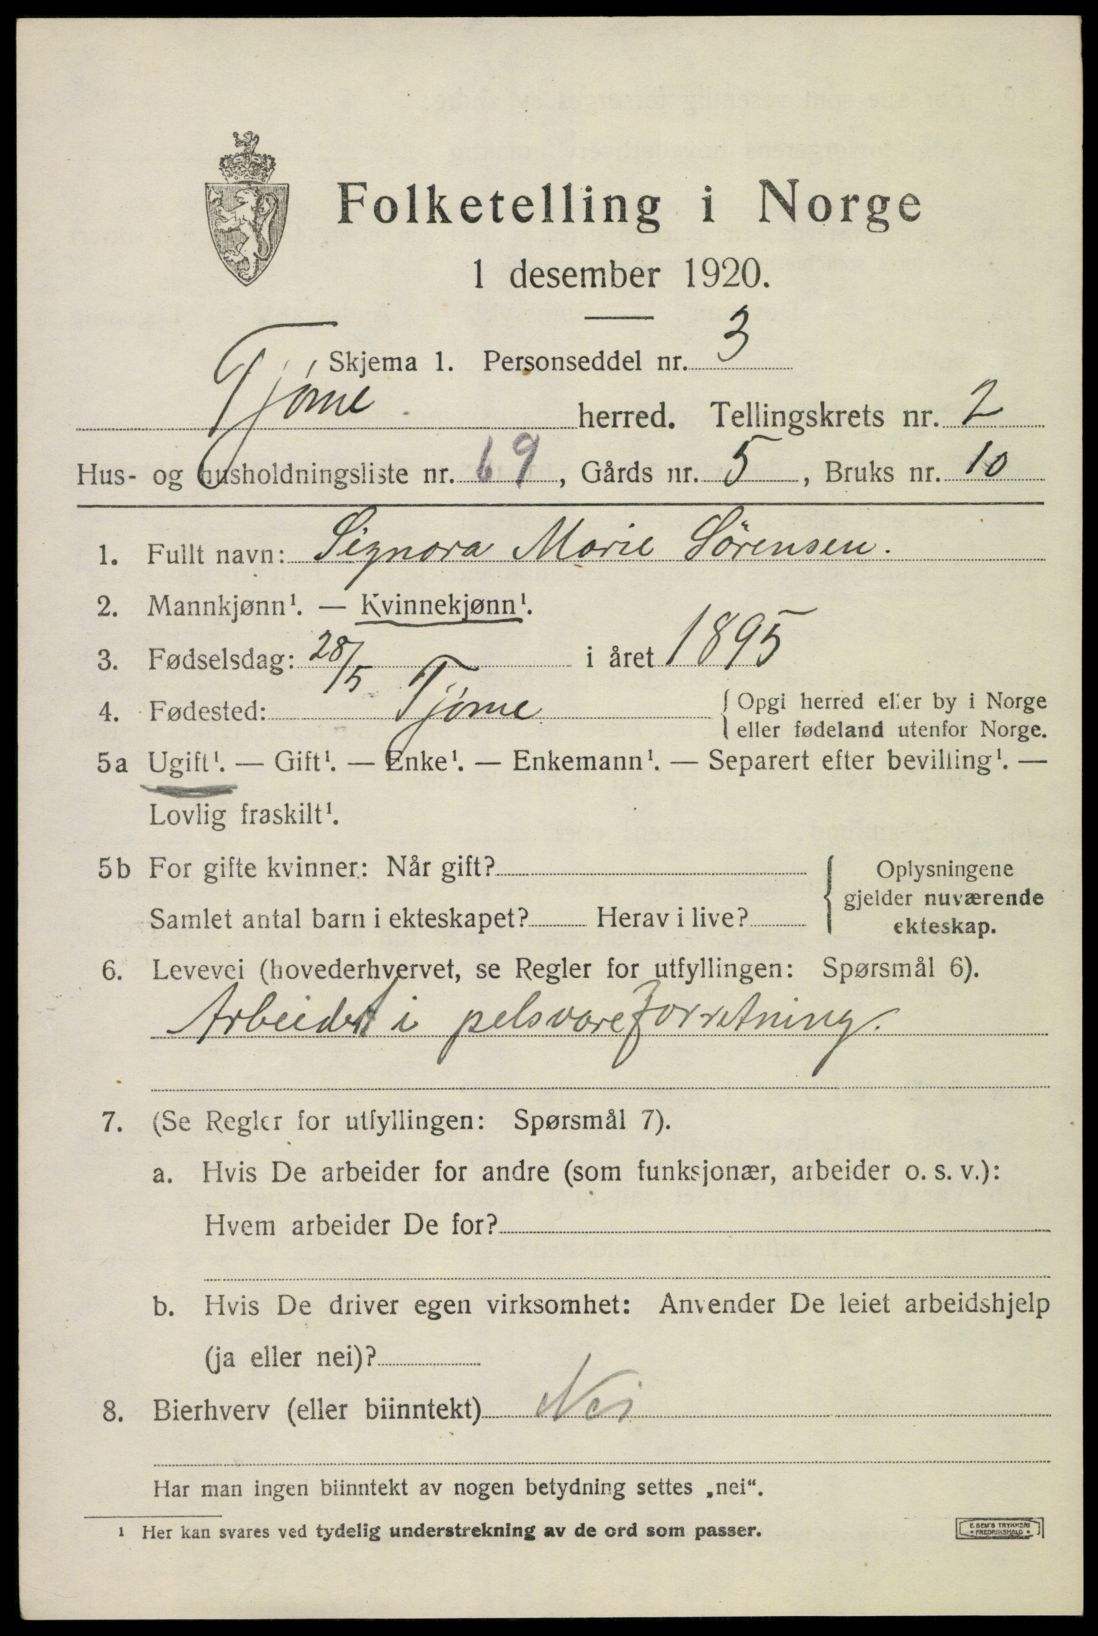 Folketelling i Norge
1 desember 1920.
Skjema 1. Personseddel nr. 3
Tjøme herred. Tellingskrets nr. 2
Hus- og husholdningsliste nr. 69, Gårds nr. 5, Bruks nr. 10
1. Fullt navn: Signora Marie Sørensen.
2. Mannkjønn¹. — Kvinnekjønn¹.
3. Fødselsdag: 28/5 i året 1895
4. Fødested: Tjøme { Opgi herred eller by i Norge
eller fødeland utenfor Norge.
5a Ugift¹. — Gift¹. — Enke¹. — Enkemann¹. — Separert efter bevilling¹. —
Lovlig fraskilt¹.
5b For gifte kvinner: Når gift? { Oplysningene
gjelder nuværende
ekteskap.
Samlet antal barn i ekteskapet? Herav i live?
6. Levevei (hovederhvervet, se Regler for utfyllingen: Spørsmål 6).
Arbeider i pelsvareforretning.
7. (Se Regler for utfyllingen: Spørsmål 7).
a. Hvis De arbeider for andre (som funksjonær, arbeider o. s. v.):
Hvem arbeider De for?
b. Hvis De driver egen virksomhet: Anvender De leiet arbeidshjelp
(ja eller nei)?
8. Bierhverv (eller biinntekt) Nei
Har man ingen biinntekt av nogen betydning settes „nei“.
¹ Her kan svares ved tydelig understrekning av de ord som passer.
E. SEM'S TRYKKERI
• FREDRIKSHALD •